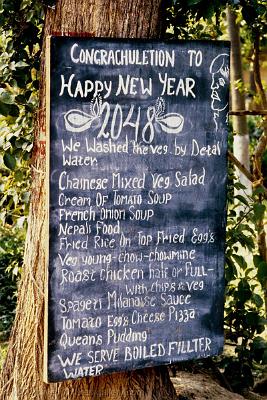 CONGRACHULETION TO
HAPPY NEW YEAR
2048
WE WASHED THE VEG. BY DETAL
WATER
CHAINESE MIXED VEG SALAD
CREAM OF TOMATO SOUP
FRENCH ONION SOUP
NEPALI FOOD
FRIED RICE ON TOP FRIED EGG'S
VEG YOUNG-CHOW-CHOWMINE
ROAST CHICKEN HALF OR FULL-
WITH CHIPS & VEG
SPAGETI MILANAISE SAUCE
TOMATO EGG'S CHEESE PIZZA
QUEAN'S PUDDING
WE SERVE BOILED FILLTER
WATER